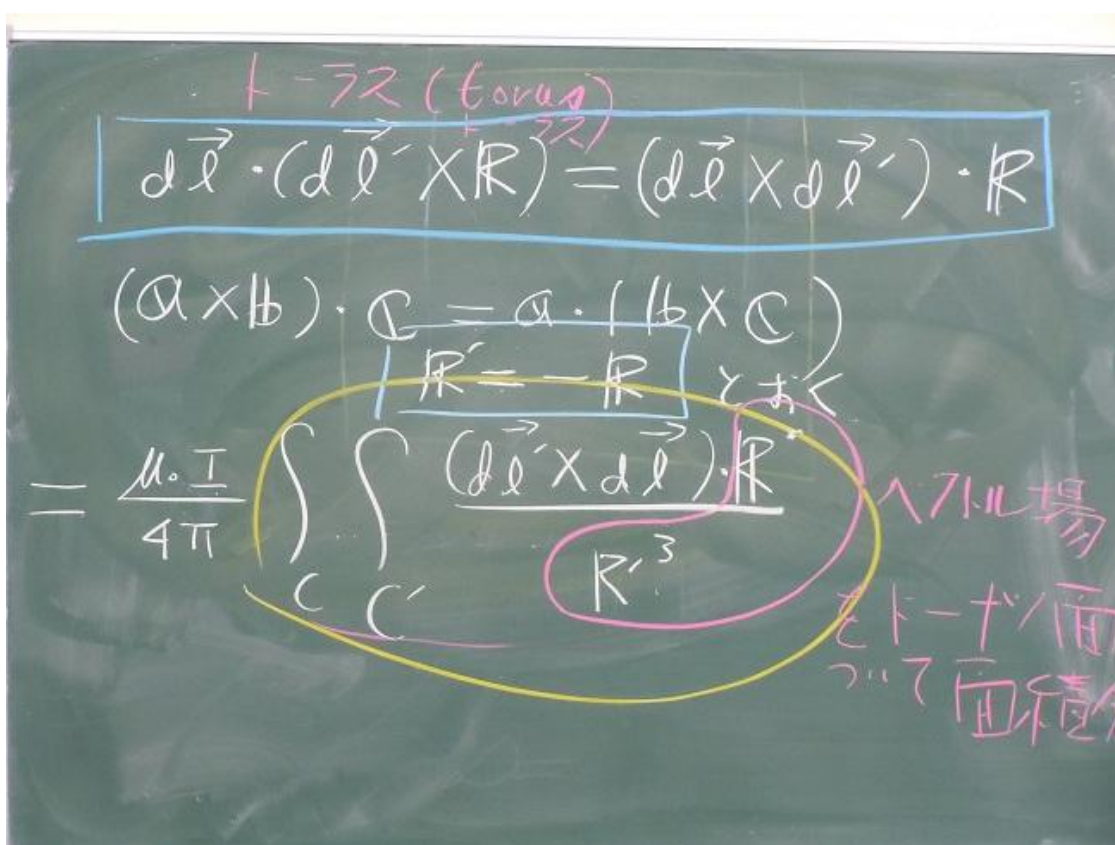 トーラス (torus)
トーラス
d𝓁⃗ · (d𝓁⃗′ × ℝ) = (d𝓁⃗ × d𝓁⃗′) · ℝ
(𝕒 × 𝕓) · ℂ = 𝕒 · (𝕓 × ℂ)
ℝ′ = −ℝ とおく
= μ₀I/4π ∫_C ∫_C′ (d𝓁⃗′ × d𝓁⃗) · ℝ′ / R′³
ベクトル場
をドーナツ面
ついて面積